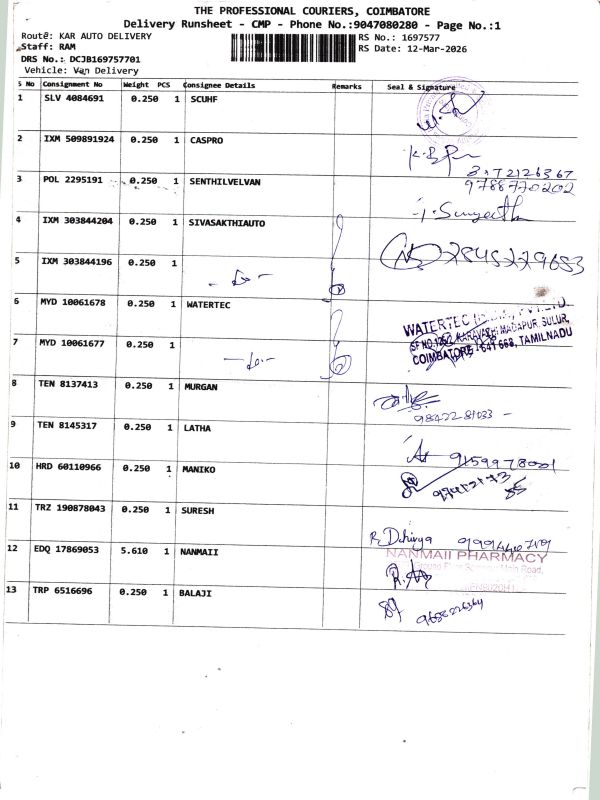 THE PROFESSIONAL COURIERS, COIMBATORE
Delivery Runsheet - CMP - Phone No.:9047080280 - Page No.:1
Route: KAR AUTO DELIVERY
RS No.: 1697577
Staff: RAM
RS Date: 12-Mar-2026
DRS No.: DCJB169757701
Vehicle: Van Delivery
S No Consignment No Weight PCS Consignee Details Remarks Seal & Signature
1 SLV 4084691 0.250 1 SCUHF
2 IXM 509891924 0.250 1 CASPRO
3 POL 2295191 0.250 1 SENTHILVELVAN
9788770202
4 IXM 303844204 0.250 1 SIVASAKTHIAUTO
5 IXM 303844196 0.250 1 -do-
7845279683
6 MYD 10061678 0.250 1 WATERTEC
WATERTEC
7 MYD 10061677 0.250 1 -do-
MADAPUR, SULUR,
COIMBATORE - 641 668, TAMILNADU
8 TEN 8137413 0.250 1 MURGAN
9842281033 -
9 TEN 8145317 0.250 1 LATHA
9159978001
10 HRD 60110966 0.250 1 MANIKO
11 TRZ 190878043 0.250 1 SURESH
12 EDQ 17869053 5.610 1 NANMAII
NANMAII PHARMACY
13 TRP 6516696 0.250 1 BALAJI
9688226364